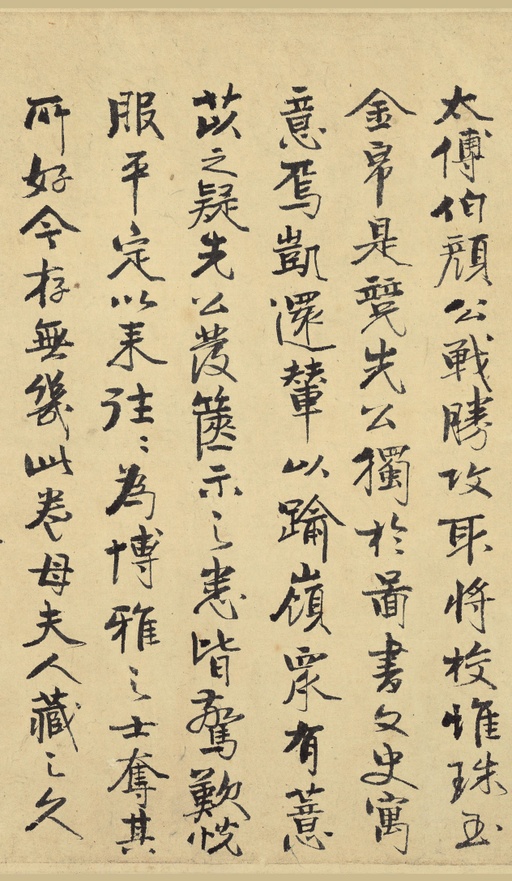 太傅伯顔公戰勝攻取將校惟珠玉
金帛是競先公獨於啚書文史寓
意焉凱還輦以踰嶺眾有薏
苡之疑先公發篋示之悉皆驚歎悅
服平定以来往〻為博雅之士奪其
所好今存無幾此卷母夫人藏之久